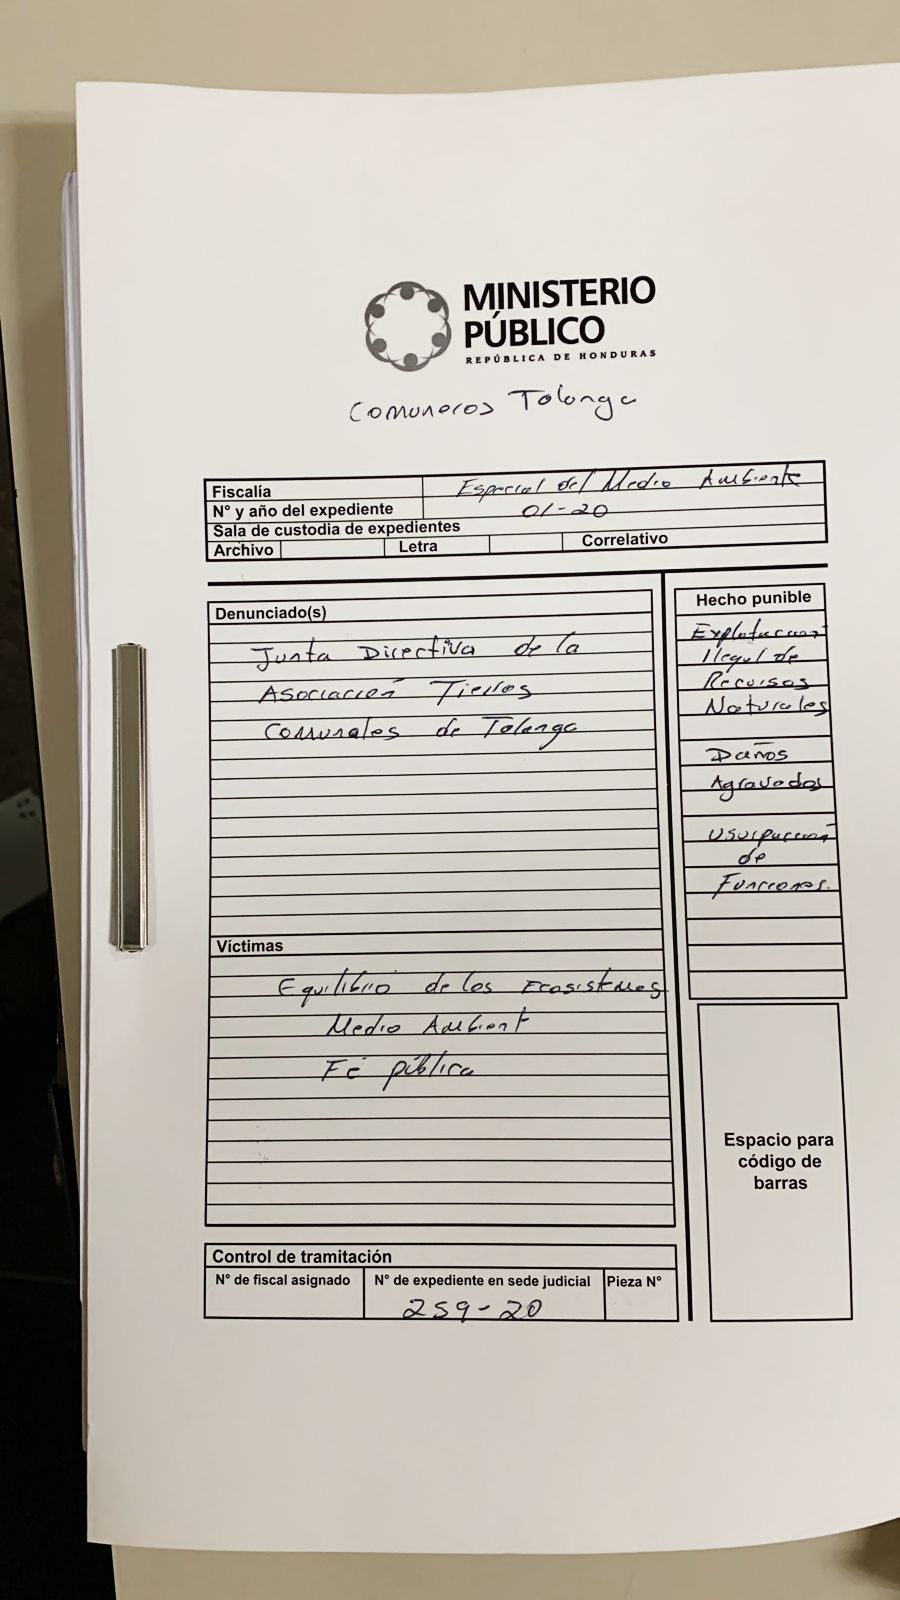 MINISTERIO
PÚBLICO
REPÚBLICA DE HONDURAS
Comuneros Tolonga
Fiscalía Especial del Medio Ambiente
N° y año del expediente 01-20
Sala de custodia de expedientes
Archivo Letra Correlativo
Denunciado(s)
Junta Directiva de la
Asociación Tierras
Comunales de Tolanga
Hecho punible
Explotacion
Ilegal de
Recursos
Naturales
Daños
Agravados
Usurpacion
de
Funciones.
Víctimas
Equilibrio de los Ecosistemas
Medio Ambient
Fé pública
Espacio para
código de
barras
Control de tramitación
N° de fiscal asignado N° de expediente en sede judicial Pieza N°
259-20